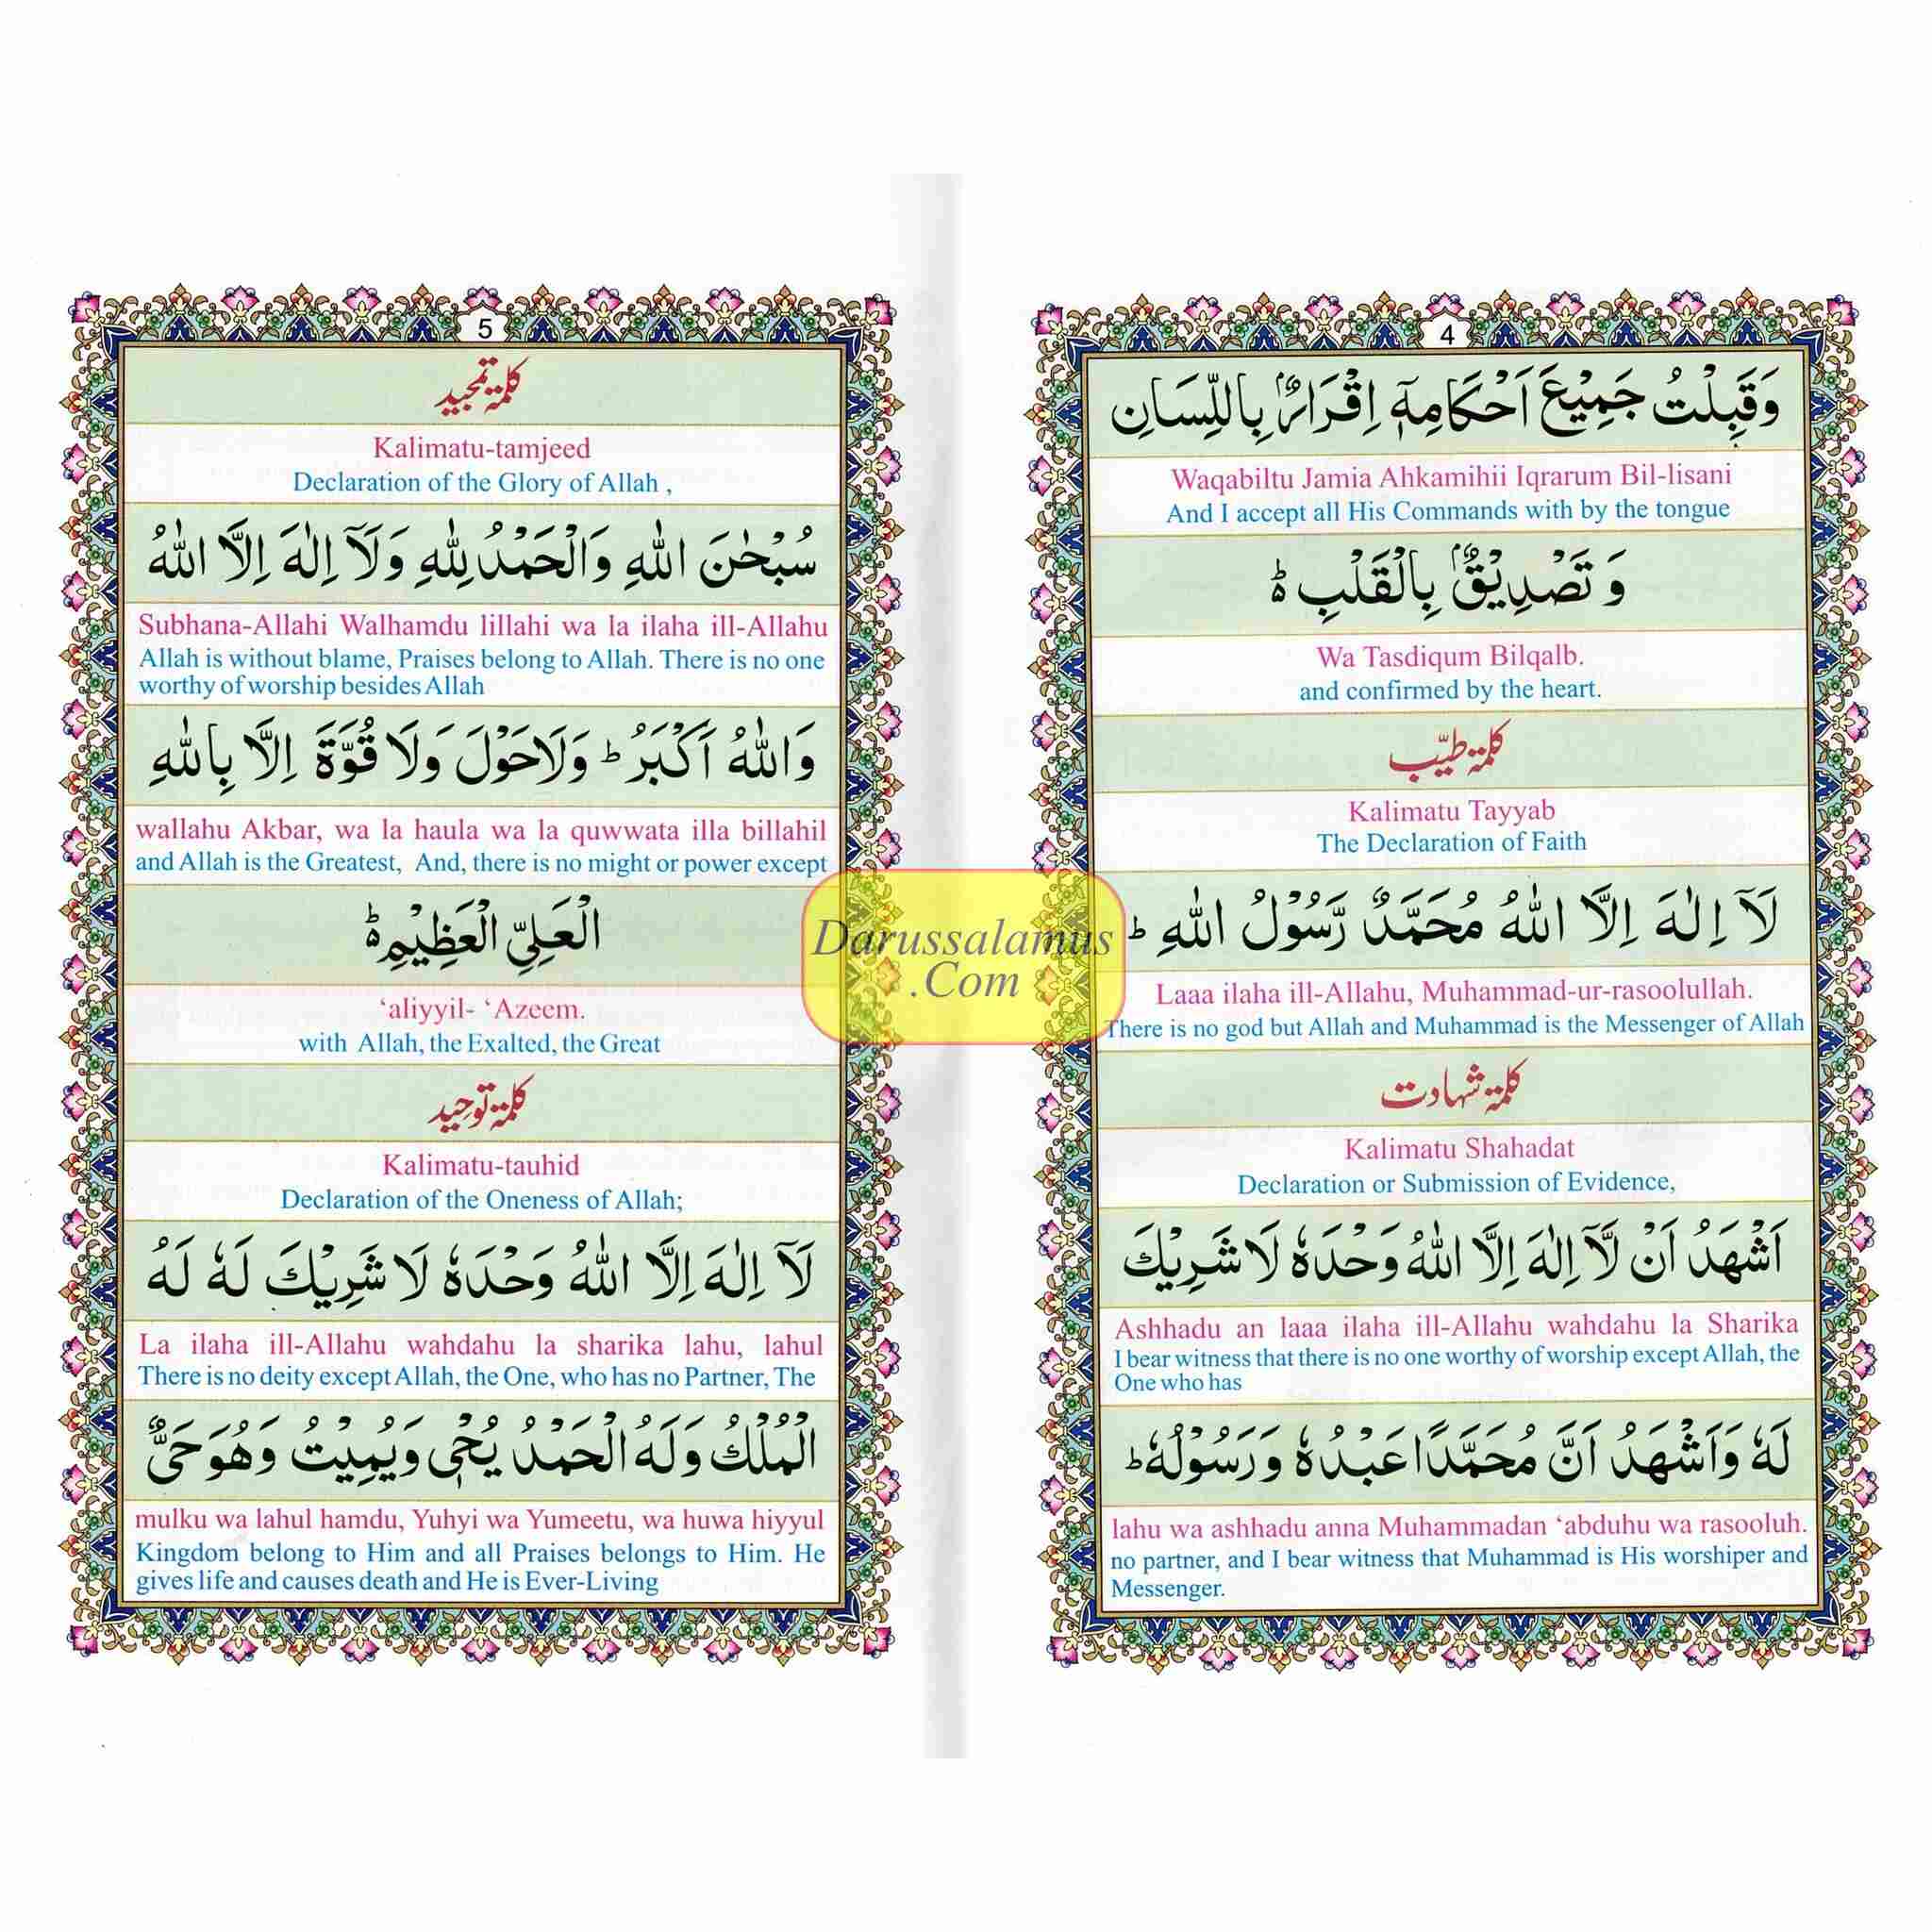 4
وَقَبِلْتُ جَمِيْعَ اَحْكَامِهٖٓ اِقْرَارٌۢ بِاللِّسَانِ
Waqabiltu Jamia Ahkamihii Iqrarum Bil-lisani
And I accept all His Commands with by the tongue
وَ تَصْدِيْقٌۢ بِالْقَلْبِ ؕ
Wa Tasdiqum Bilqalb.
and confirmed by the heart.
كلمۃ طیّب
Kalimatu Tayyab
The Declaration of Faith
لَآ اِلٰهَ اِلَّا اللّٰهُ مُحَمَّدٌ رَّسُوْلُ اللّٰهِ ؕ
Laaa ilaha ill-Allahu, Muhammad-ur-rasoolullah.
There is no god but Allah and Muhammad is the Messenger of Allah
كلمۃ شہادت
Kalimatu Shahadat
Declaration or Submission of Evidence,
اَشْهَدُ اَنْ لَّآ اِلٰهَ اِلَّا اللّٰهُ وَحْدَهٗ لَا شَرِيْكَ
Ashhadu an laaa ilaha ill-Allahu wahdahu la Sharika
I bear witness that there is no one worthy of worship except Allah, the
One who has
لَهٗ وَاَشْهَدُ اَنَّ مُحَمَّدًا عَبْدُهٗ وَرَسُوْلُهٗ ؕ
lahu wa ashhadu anna Muhammadan ‘abduhu wa rasooluh.
no partner, and I bear witness that Muhammad is His worshiper and
Messenger.
5
كلمۃ تمجید
Kalimatu-tamjeed
Declaration of the Glory of Allah ,
سُبْحٰنَ اللّٰهِ وَالْحَمْدُ لِلّٰهِ وَلَآ اِلٰهَ اِلَّا اللّٰهُ
Subhana-Allahi Walhamdu lillahi wa la ilaha ill-Allahu
Allah is without blame, Praises belong to Allah. There is no one
worthy of worship besides Allah
وَاللّٰهُ اَكْبَرُ ؕ وَلَا حَوْلَ وَلَا قُوَّةَ اِلَّا بِاللّٰهِ
wallahu Akbar, wa la haula wa la quwwata illa billahil
and Allah is the Greatest, And, there is no might or power except
الْعَلِيِّ الْعَظِيْمِ ؕ
‘aliyyil- ‘Azeem.
with Allah, the Exalted, the Great
كلمۃ توحید
Kalimatu-tauhid
Declaration of the Oneness of Allah;
لَآ اِلٰهَ اِلَّا اللّٰهُ وَحْدَهٗ لَا شَرِيْكَ لَهٗ لَهُ
La ilaha ill-Allahu wahdahu la sharika lahu, lahul
There is no deity except Allah, the One, who has no Partner, The
الْمُلْكُ وَلَهُ الْحَمْدُ يُحْيٖ وَيُمِيْتُ وَهُوَ حَيٌّ
mulku wa lahul hamdu, Yuhyi wa Yumeetu, wa huwa hiyyul
Kingdom belong to Him and all Praises belongs to Him. He
gives life and causes death and He is Ever-Living
Darussalamus
.Com